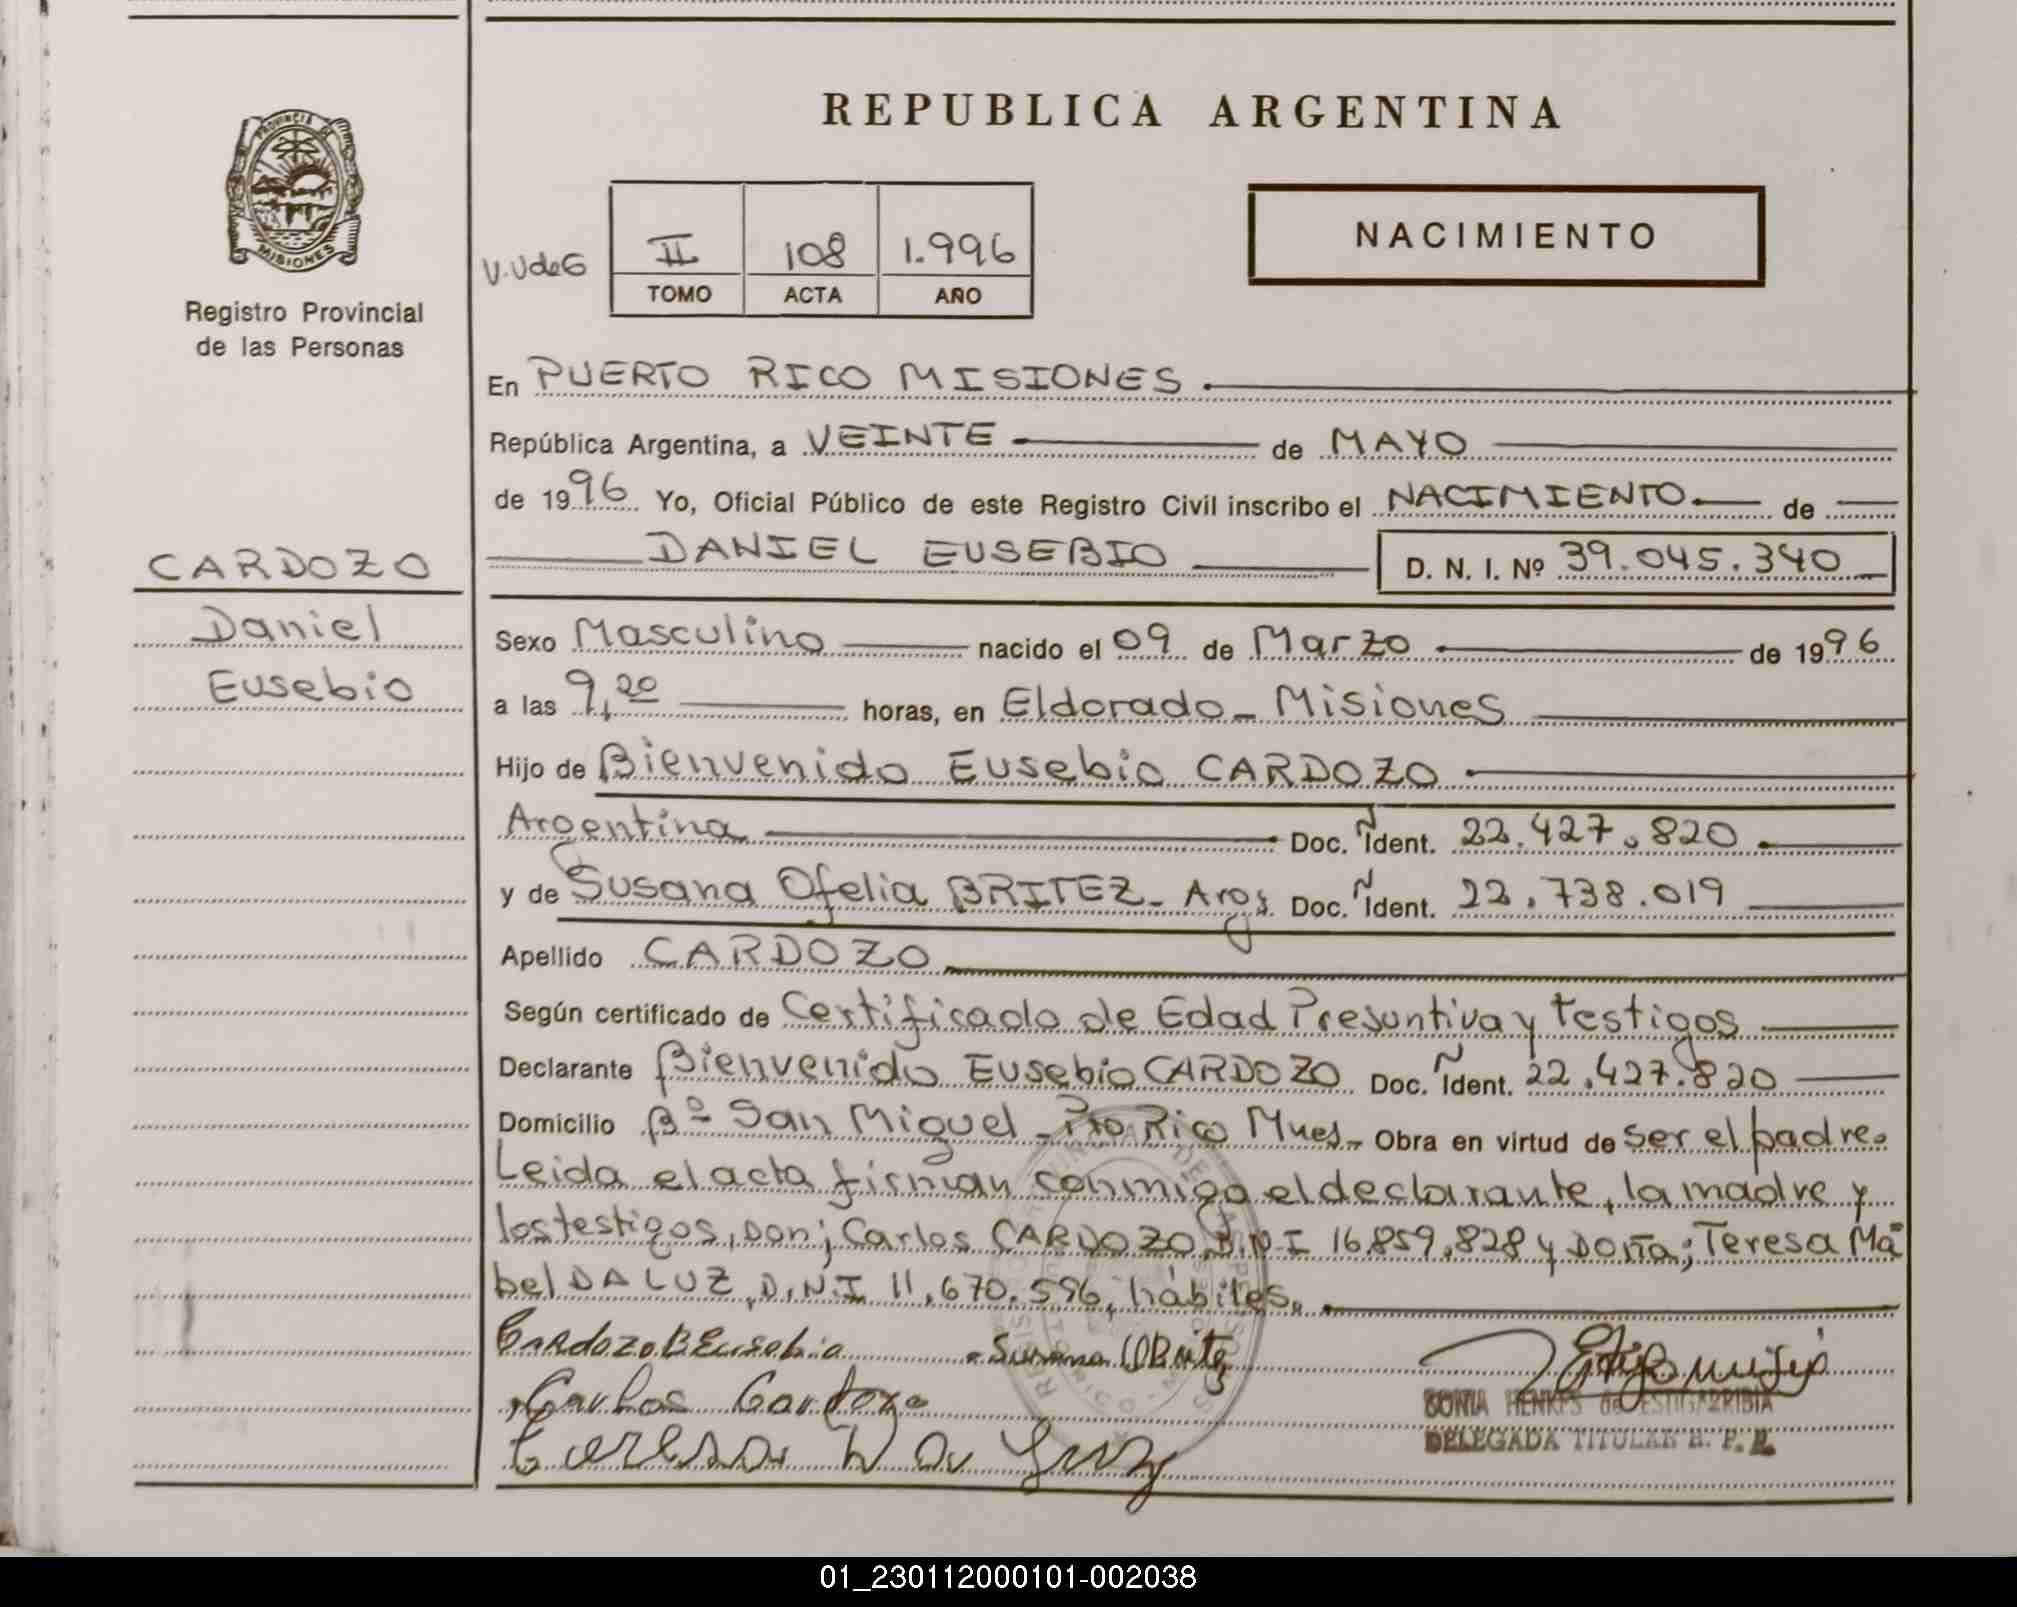 REPUBLICA ARGENTINA
PROVINCIA DE
MISIONES
Registro Provincial
de las Personas
V.VdeG
II 108 1.996
TOMO ACTA AÑO
NACIMIENTO
En PUERTO RICO MISIONES.
República Argentina, a VEINTE de MAYO
de 1996 Yo, Oficial Público de este Registro Civil inscribo el NACIMIENTO de
DANIEL EUSEBIO D. N. I. Nº 39.045.340
CARDOZO
Daniel
Eusebio
Sexo Masculino nacido el 09 de Marzo de 1996
a las 9,20 horas, en Eldorado_ Misiones
Hijo de Bienvenido Eusebio CARDOZO
Argentina Doc. Ident. 22.427.820
y de Susana Ofelia BRITEZ_ Arg; Doc. Ident. 22.738.019
Apellido CARDOZO
Según certificado de Certificado de Edad Presuntiva y Testigos
Declarante Bienvenido Eusebio CARDOZO Doc. Ident. 22.427.820
Domicilio Bº San Miguel_ Pto Rico Mnes_ Obra en virtud de ser el padre.
Leida el acta firman conmigo el declarante, la madre y
los testigos, Don; Carlos CARDOZO D.N.I 16.859.828 y Doña; Teresa Ma
bel DA LUZ, D.N.I 11.670.596, hábiles.
Cardozo B Eusebio Susana O Britez
Carlos Cardozo
Teresa Da Luz
SONIA HENKES de ESTIGARRIBIA
DELEGADA TITULAR R. P. P.
01_230112000101-002038